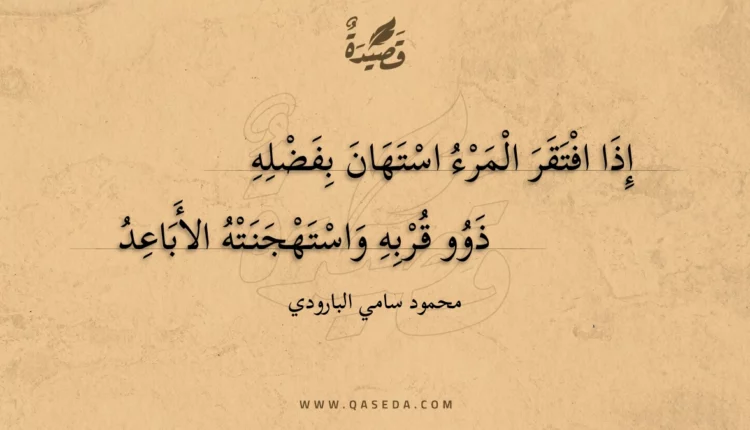 قَصِيدَةٌ
إِذَا افْتَقَرَ الْمَرْءُ اسْتَهَانَ بِفَضْلِهِ
ذَوُو قُرْبِهِ وَاسْتَهْجَنَتْهُ الأَبَاعِدُ
محمود سامي البارودي
WWW.QASEDA.COM